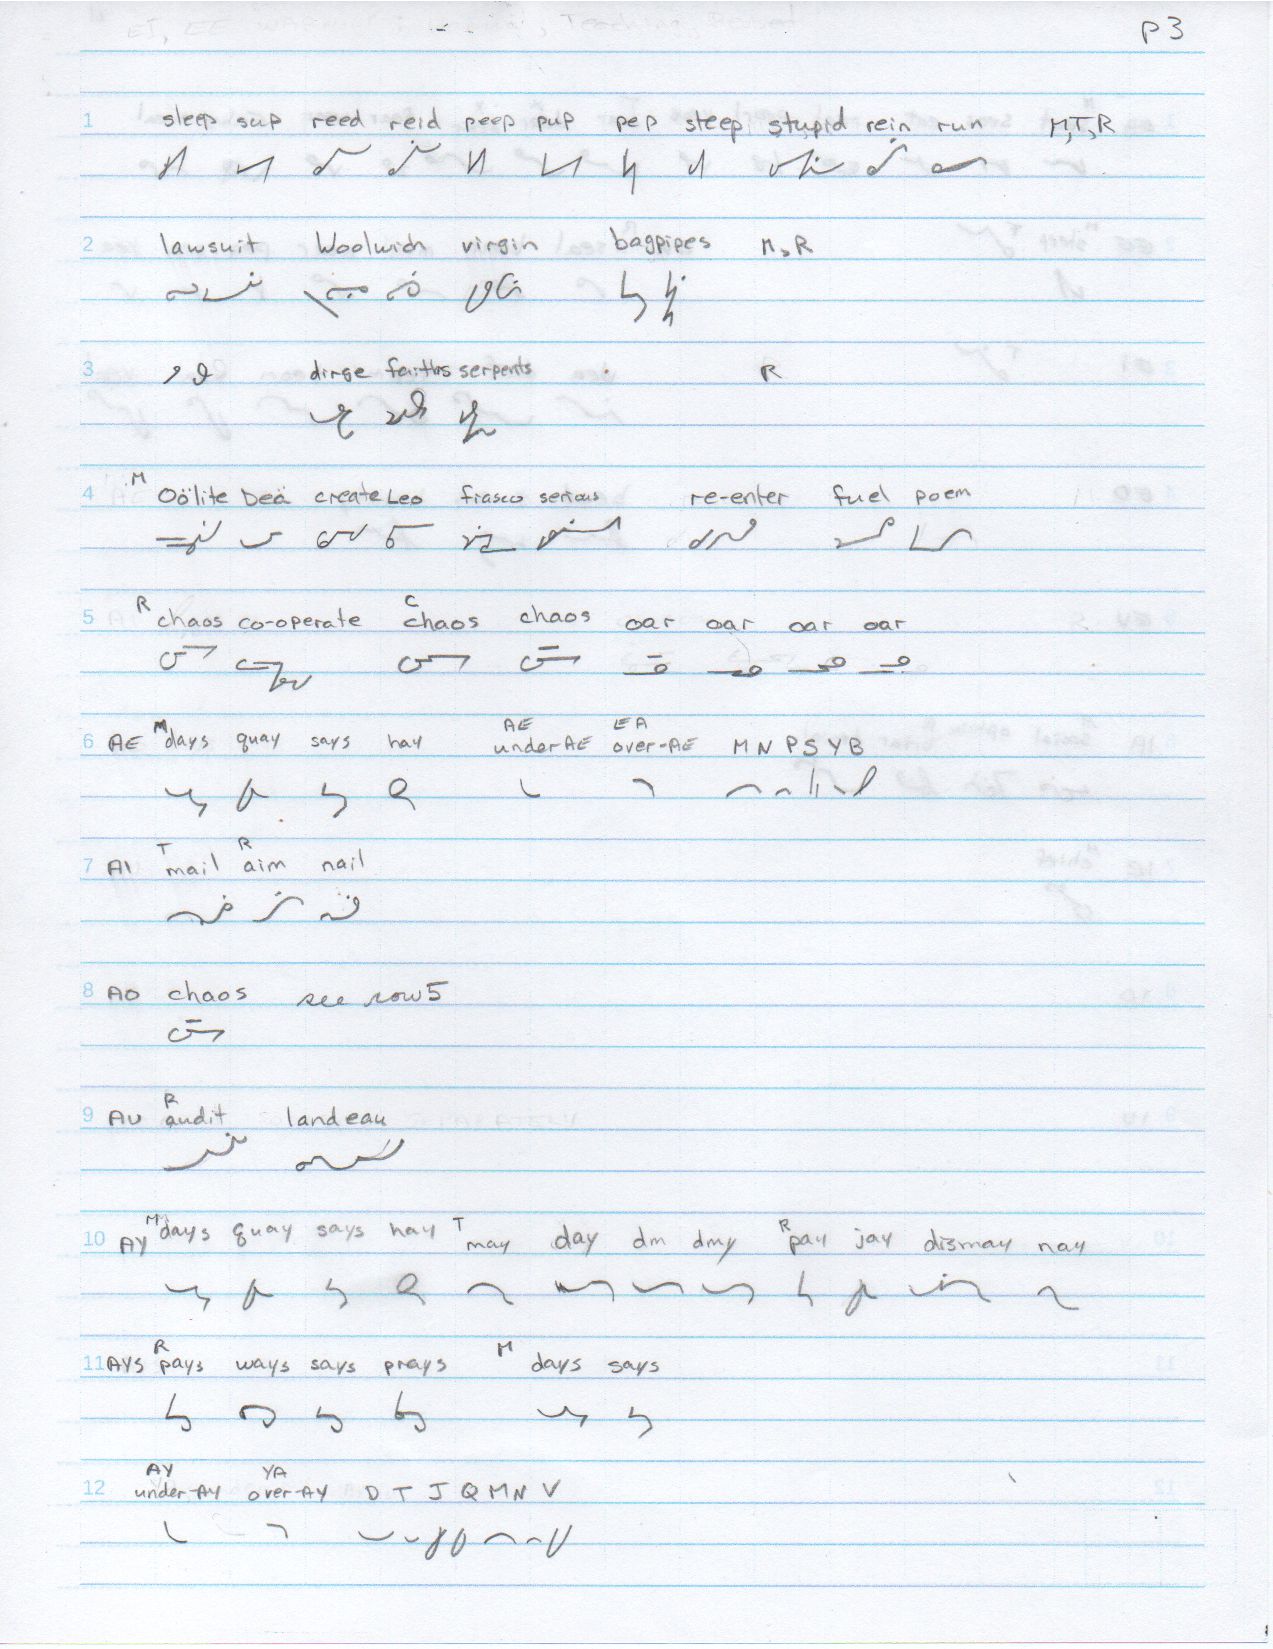 p3
1 sleep sup reed reid peep pup pep steep stupid rein run M,T,R
2 lawsuit Woolwich virgin bagpipes M,R
3 dirge faiths serpents R
4 M Oölite Deä create Leo fiasco serious re-enter fuel poem
5 R chaos co-operate C chaos chaos oar oar oar oar
6 AE M days quay says hay AE under AE EA over-AE M N P S Y B
7 AI T mail R aim nail
8 AO chaos see row 5
9 AU R audit landeau
10 AY M days quay says hay T may day dm dmy R pay jay dismay nay
11 AYS R pays ways says prays M days says
12 AY under-AY YA over-AY D T J Q M N V